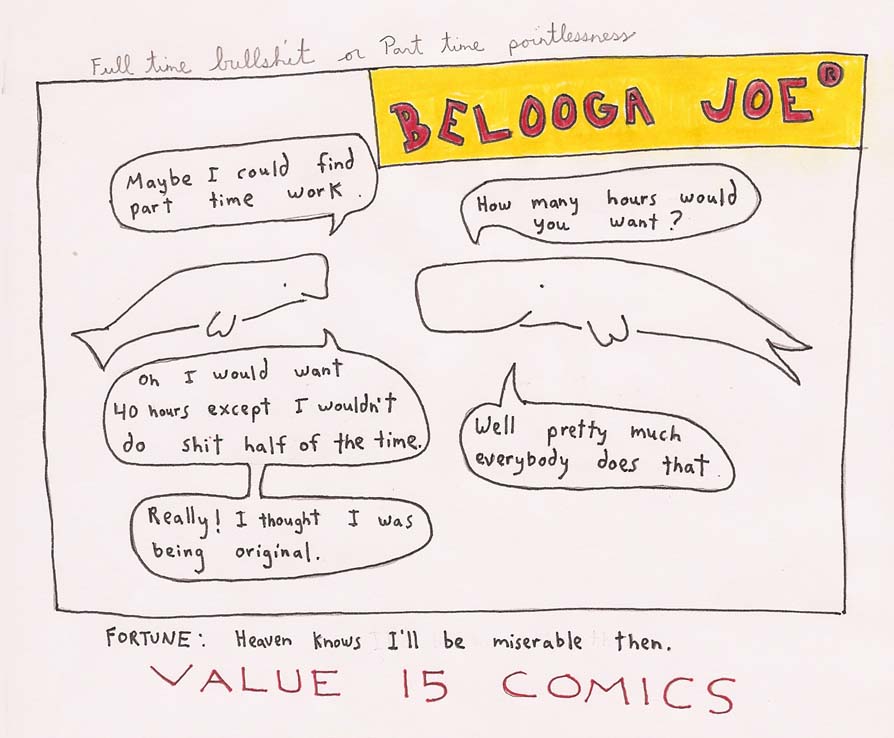 Full time bullshit or Part time pointlessness
BELOOGA JOE®
Maybe I could find
part time work.
How many hours would
you want?
Oh I would want
40 hours except I wouldn't
do shit half of the time.
Well pretty much
everybody does that.
Really! I thought I was
being original.
FORTUNE: Heaven knows I'll be miserable then.
VALUE 15 COMICS